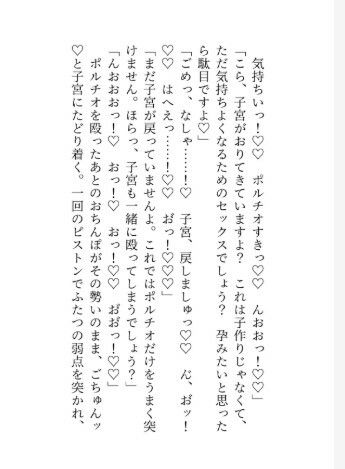 気持ちいっ！♡♡　ポルチオすきっ♡♡　んおおっ！♡♡」
「こら、子宮がおりてきていますよ？　これは子作りじゃなくて、
ただ気持ちよくなるためのセックスでしょう？　孕みたいと思った
ら駄目ですよ♡」
「ごめっ、なしゃ……！♡　子宮、戻しましゅっ♡♡　ん゛、お゛ッ！
♡♡　はへえっ……！♡♡　お゛っ！♡♡♡」
「まだ子宮が戻っていませんよ。これではポルチオだけをうまく突
けません。ほらっ、子宮も一緒に殴ってしまうでしょう？」
「んおおおっ！♡　おっ！♡　おっ！♡♡　お゛お゛っ！♡♡」
　ポルチオを殴ったあとのおちんぽがその勢いのまま、ごちゅんッ
♡と子宮にたどり着く。一回のピストンでふたつの弱点を突かれ、